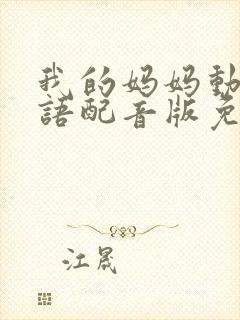 我的妈妈動
語配音版免
江晟